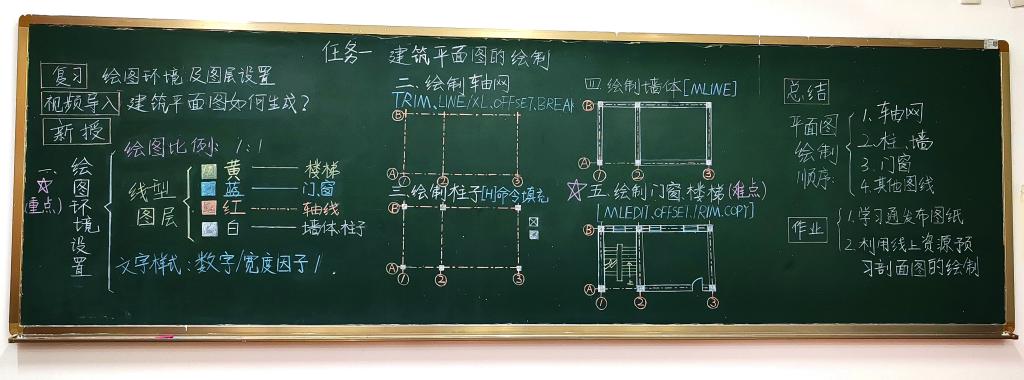 任务一 建筑平面图的绘制
复习 绘图环境及图层设置
视频导入 建筑平面图如何生成?
新授
一、绘图环境设置
☆(重点)
绘图比例: 1:1
线型图层
黄 —— 楼梯
蓝 —— 门窗
红 —·— 轴线
白 —— 墙体.柱子
文字样式:数字/宽度因子1.
二、绘制轴网
TRIM.LINE/XL.OFFSET.BREAK
B
A
1 2 3
三、绘制柱子[H]命令填充
B
A
1 2 3
四 绘制墙体[MLINE]
B
A
1 2 3
☆五.绘制门窗.楼梯(难点)
[MLEDIT.OFFSET.TRIM.COPY]
B
A
1 2 3
总结
平面图绘制顺序:
1.轴网
2.柱、墙
3.门窗
4.其他图线
作业
1.学习通发布图纸
2.利用线上资源预
习剖面图的绘制